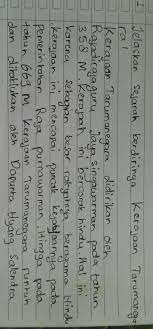 1 Jelaskan sejarah berdirinya Kerajaan Tarumanega
ra!
Kerajaan Tarumanegara didirikan oleh
Rajadirajaguru Jayasingawarman pada tahun
358 M. Kerajaan ini bercorak hindu. Hal ini
karena sebagian besar rakyatnya beragama hindu
kerajaan ini mencapai puncak kejayaannya pada
pemerintahan Raja purnawarman. Hingga pada
tahun 669 M, Kerajaan Tarumanegara runtuh
dan ditaklukan oleh Dapunta Hyang Salendra